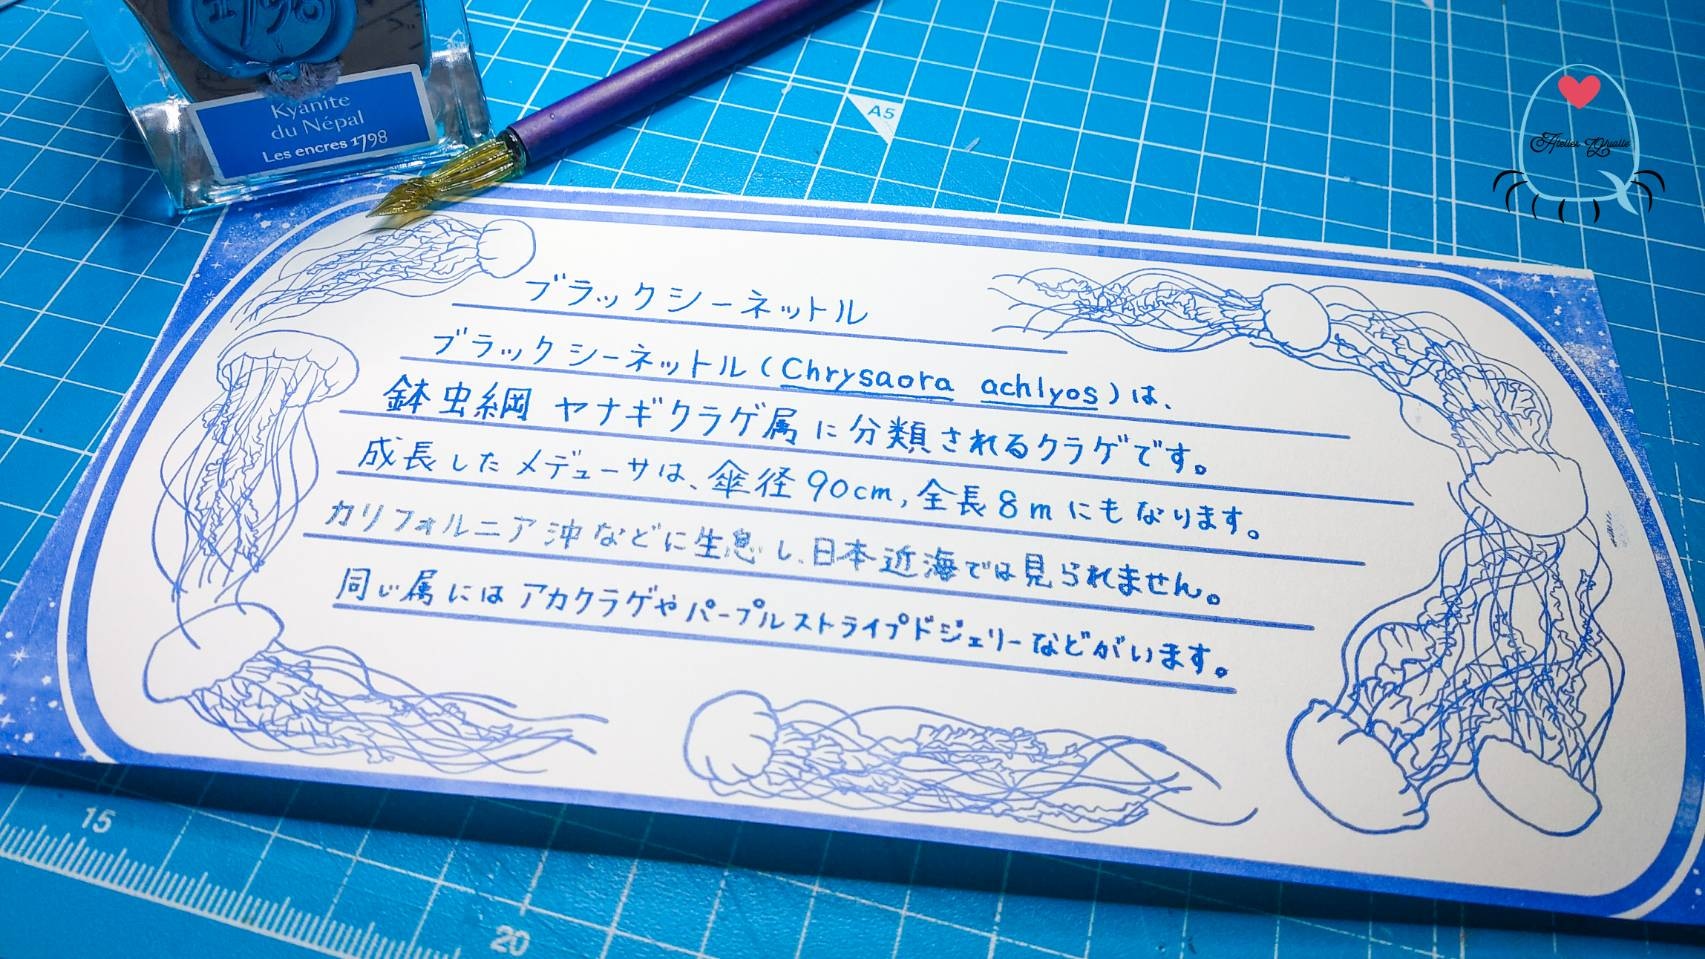 1798
Kyanite
du Népal
Les encres 1798
A5
Atelier Qualle
ブラックシーネットル
ブラックシーネットル(Chrysaora achlyos)は、
鉢虫綱 ヤナギクラゲ属に分類されるクラゲです。
成長したメデューサは、傘径90cm,全長8mにもなります。
カリフォルニア沖などに生息し、日本近海では見られません。
同じ属にはアカクラゲやパープルストライプドジェリーなどがいます。
15
20